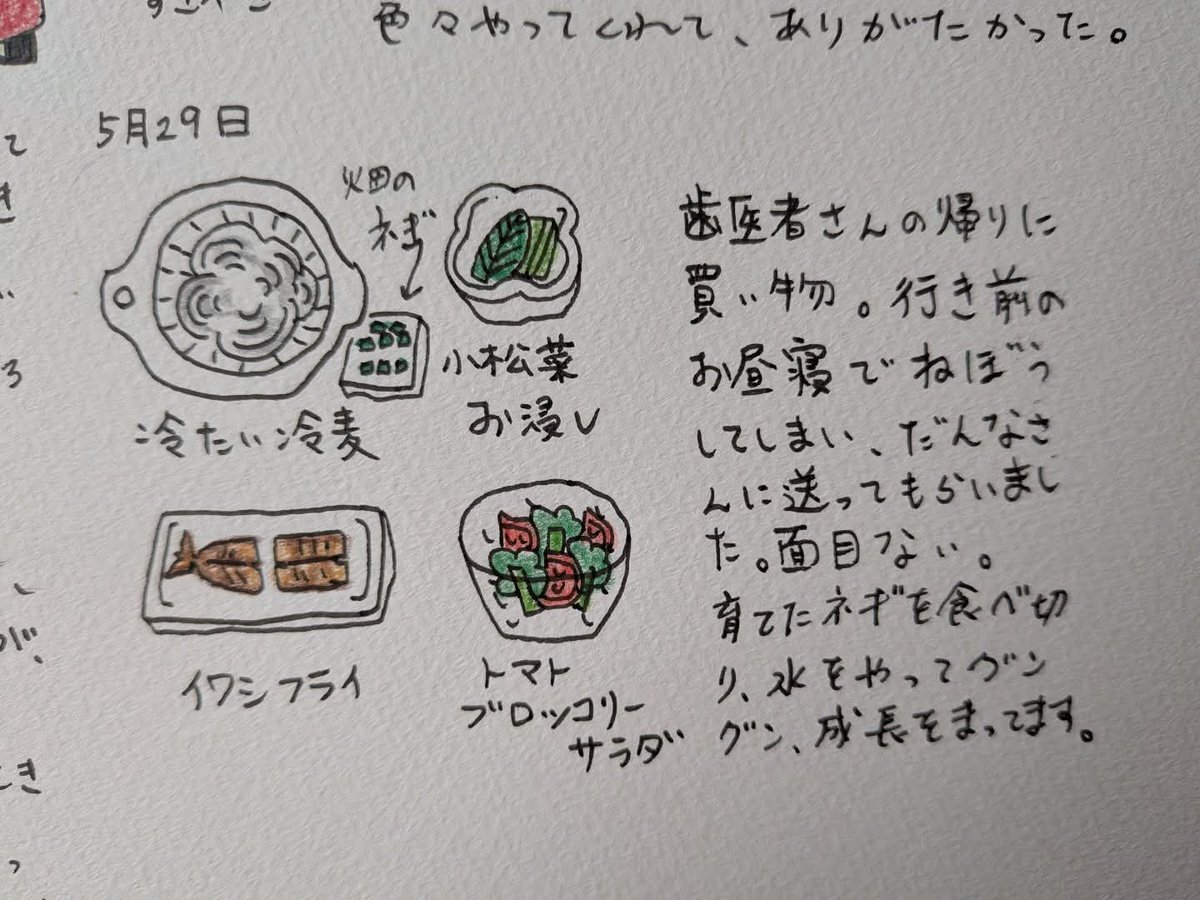 色々やってくれて、ありがたかった。
5月29日
畑の
ネギ
冷たい冷麦
小松菜
お浸し
イワシフライ
トマト
ブロッコリー
サラダ
歯医者さんの帰りに
買い物。行き前の
お昼寝でねぼう
してしまい、だんなさ
んに送ってもらいまし
た。面目ない。
育てたネギを食べ切
り、水をやってグン
グン、成長をまってます。